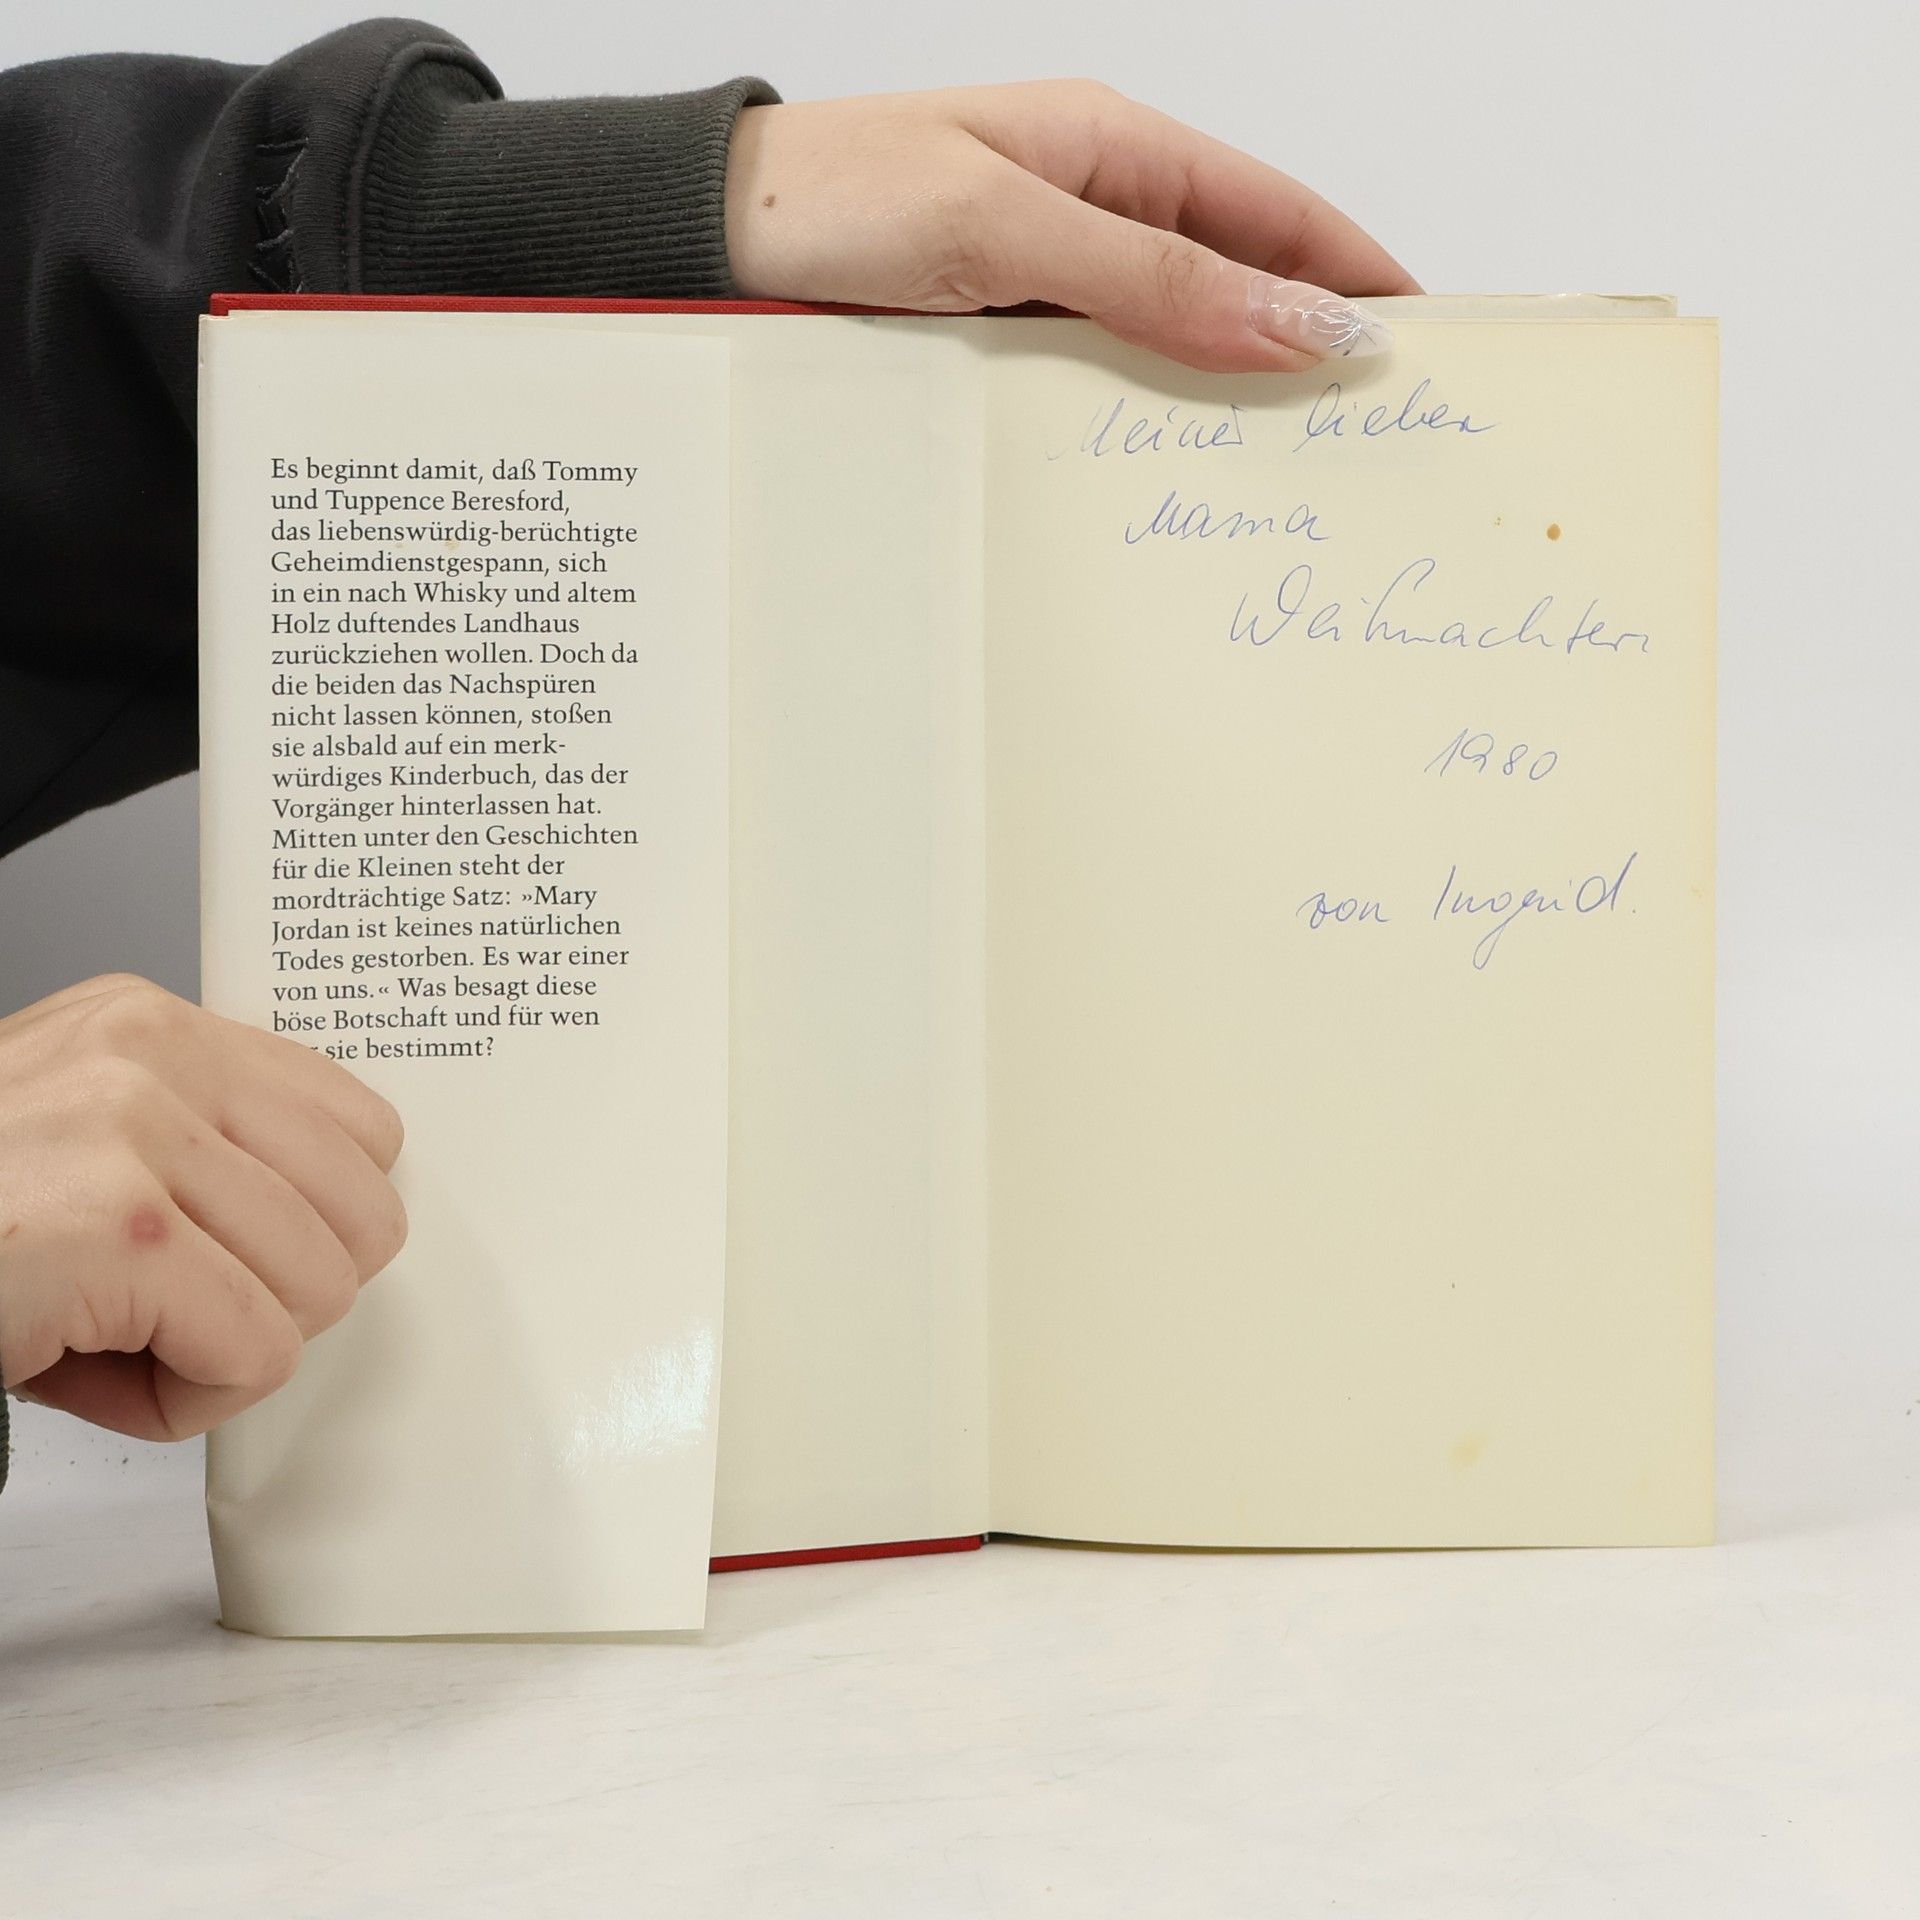 Es beginnt damit, daß Tommy
und Tuppence Beresford,
das liebenswürdig-berüchtigte
Geheimdienstgespann, sich
in ein nach Whisky und altem
Holz duftendes Landhaus
zurückziehen wollen. Doch da
die beiden das Nachspüren
nicht lassen können, stoßen
sie alsbald auf ein merk-
würdiges Kinderbuch, das der
Vorgänger hinterlassen hat.
Mitten unter den Geschichten
für die Kleinen steht der
mordträchtige Satz: »Mary
Jordan ist keines natürlichen
Todes gestorben. Es war einer
von uns.« Was besagt diese
böse Botschaft und für wen
sie bestimmt?
Meiner lieben
Mama
Weihnachten
1980
von Ingrid.